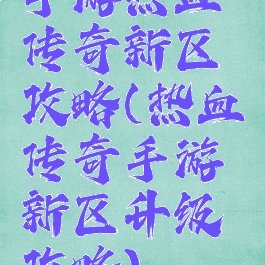 手游热血
传奇新区
攻略(热血
传奇手游
新区升级
攻略)